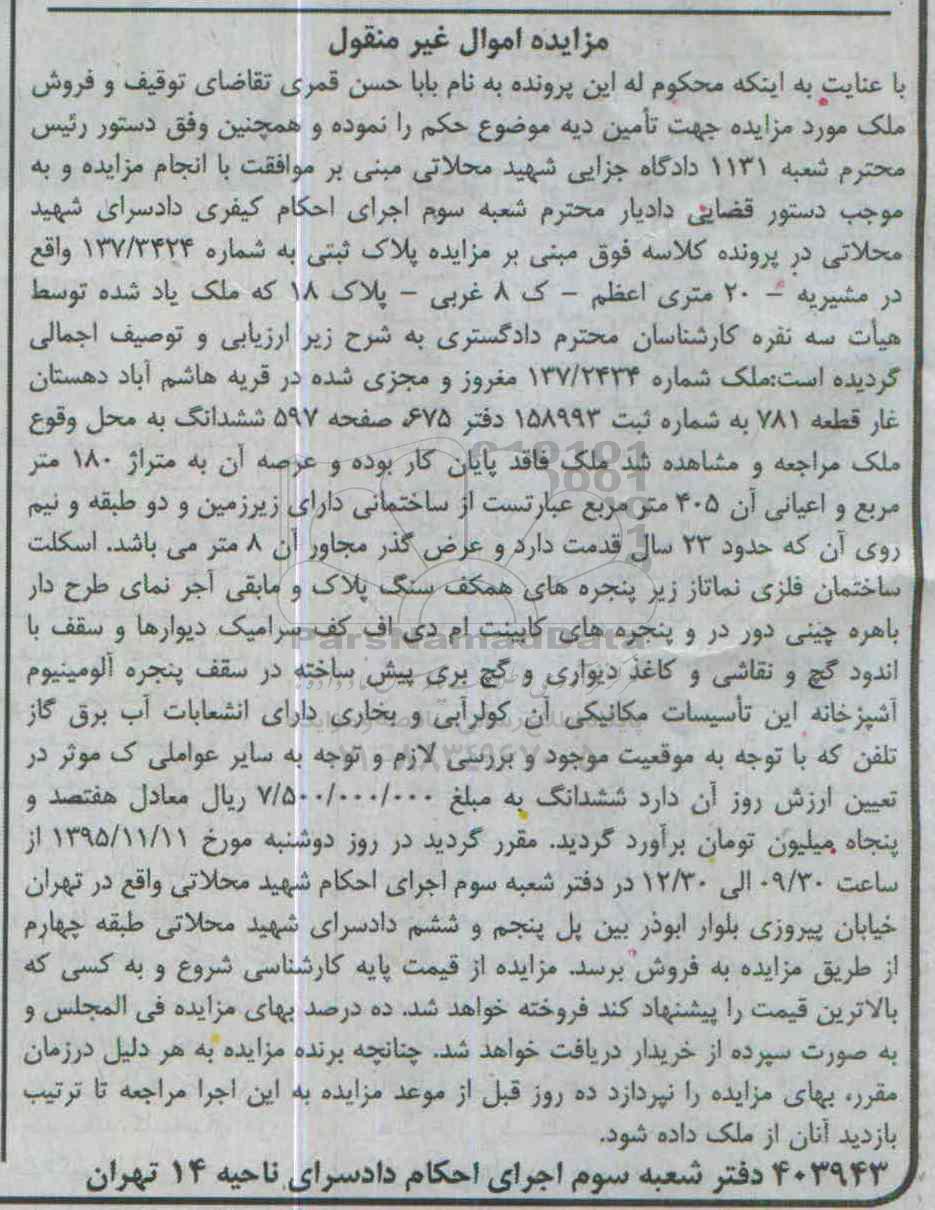 مزایده اموال غیر منقول
با عنایت به اینکه محکوم له این پرونده به نام بابا حسن قمری تقاضای توقیف و فروش
ملک مورد مزایده جهت تأمین دیه موضوع حکم را نموده و همچنین وفق دستور رئیس
محترم شعبه ۱۱۳۱ دادگاه جزایی شهید محلاتی مبنی بر موافقت با انجام مزایده و به
موجب دستور قضایی دادیار محترم شعبه سوم اجرای احکام کیفری دادسرای شهید
محلاتی در پرونده کلاسه فوق مبنی بر مزایده پلاک ثبتی به شماره ۱۳۷/۳۴۲۴ واقع
در مشیریه - ۲۰ متری اعظم - ک ۸ غربی - پلاک ۱۸ که ملک یاد شده توسط
هیأت سه نفره کارشناسان محترم دادگستری به شرح زیر ارزیابی و توصیف اجمالی
گردیده است:ملک شماره ۱۳۷/۲۴۳۴ مغروز و مجزی شده در قریه هاشم آباد دهستان
غار قطعه ۷۸۱ به شماره ثبت ۱۵۸۹۹۳ دفتر ۶۷۵، صفحه ۵۹۷ ششدانگ به محل وقوع
ملک مراجعه و مشاهده شد ملک فاقد پایان کار بوده و عرصه آن به متراژ ۱۸۰ متر
مربع و اعیانی آن ۴۰۵ متر مربع عبارتست از ساختمانی دارای زیرزمین و دو طبقه و نیم
روی آن که حدود ۲۳ سال قدمت دارد و عرض گذر مجاور آن ۸ متر می باشد. اسکلت
ساختمان فلزی نماتاز زیر پنجره های همکف سنگ پلاک و مابقی آجر نمای طرح دار
باهره چینی دور در و پنجره های کابینت ام دی اف کف سرامیک دیوارها و سقف با
اندود گچ و نقاشی و کاغذ دیواری و گچ بری پیش ساخته در سقف پنجره آلومینیوم
آشپزخانه این تأسیسات مکانیکی آن کولرآبی و بخاری دارای انشعابات آب برق گاز
تلفن که با توجه به موقعیت موجود و بررسی لازم و توجه به سایر عواملی ک موثر در
تعیین ارزش روز آن دارد ششدانگ به مبلغ ۷/۵۰۰/۰۰۰/۰۰۰ ریال معادل هفتصد و
پنجاه میلیون تومان برآورد گردید. مقرر گردید در روز دوشنبه مورخ ۱۳۹۵/۱۱/۱۱ از
ساعت ۰۹/۳۰ الی ۱۲/۳۰ در دفتر شعبه سوم اجرای احکام شهید محلاتی واقع در تهران
خیابان پیروزی بلوار ابوذر بین پل پنجم و ششم دادسرای شهید محلاتی طبقه چهارم
از طریق مزایده به فروش برسد. مزایده از قیمت پایه کارشناسی شروع و به کسی که
بالاترین قیمت را پیشنهاد کند فروخته خواهد شد. ده درصد بهای مزایده فی المجلس و
به صورت سپرده از خریدار دریافت خواهد شد. چنانچه برنده مزایده به هر دلیل درزمان
مقرر، بهای مزایده را نپردازد ده روز قبل از موعد مزایده به این اجرا مراجعه تا ترتیب
بازدید آنان از ملک داده شود.
۴۰۳۹۴۳ دفتر شعبه سوم اجرای احکام دادسرای ناحیه ۱۴ تهران
ParsNamadData